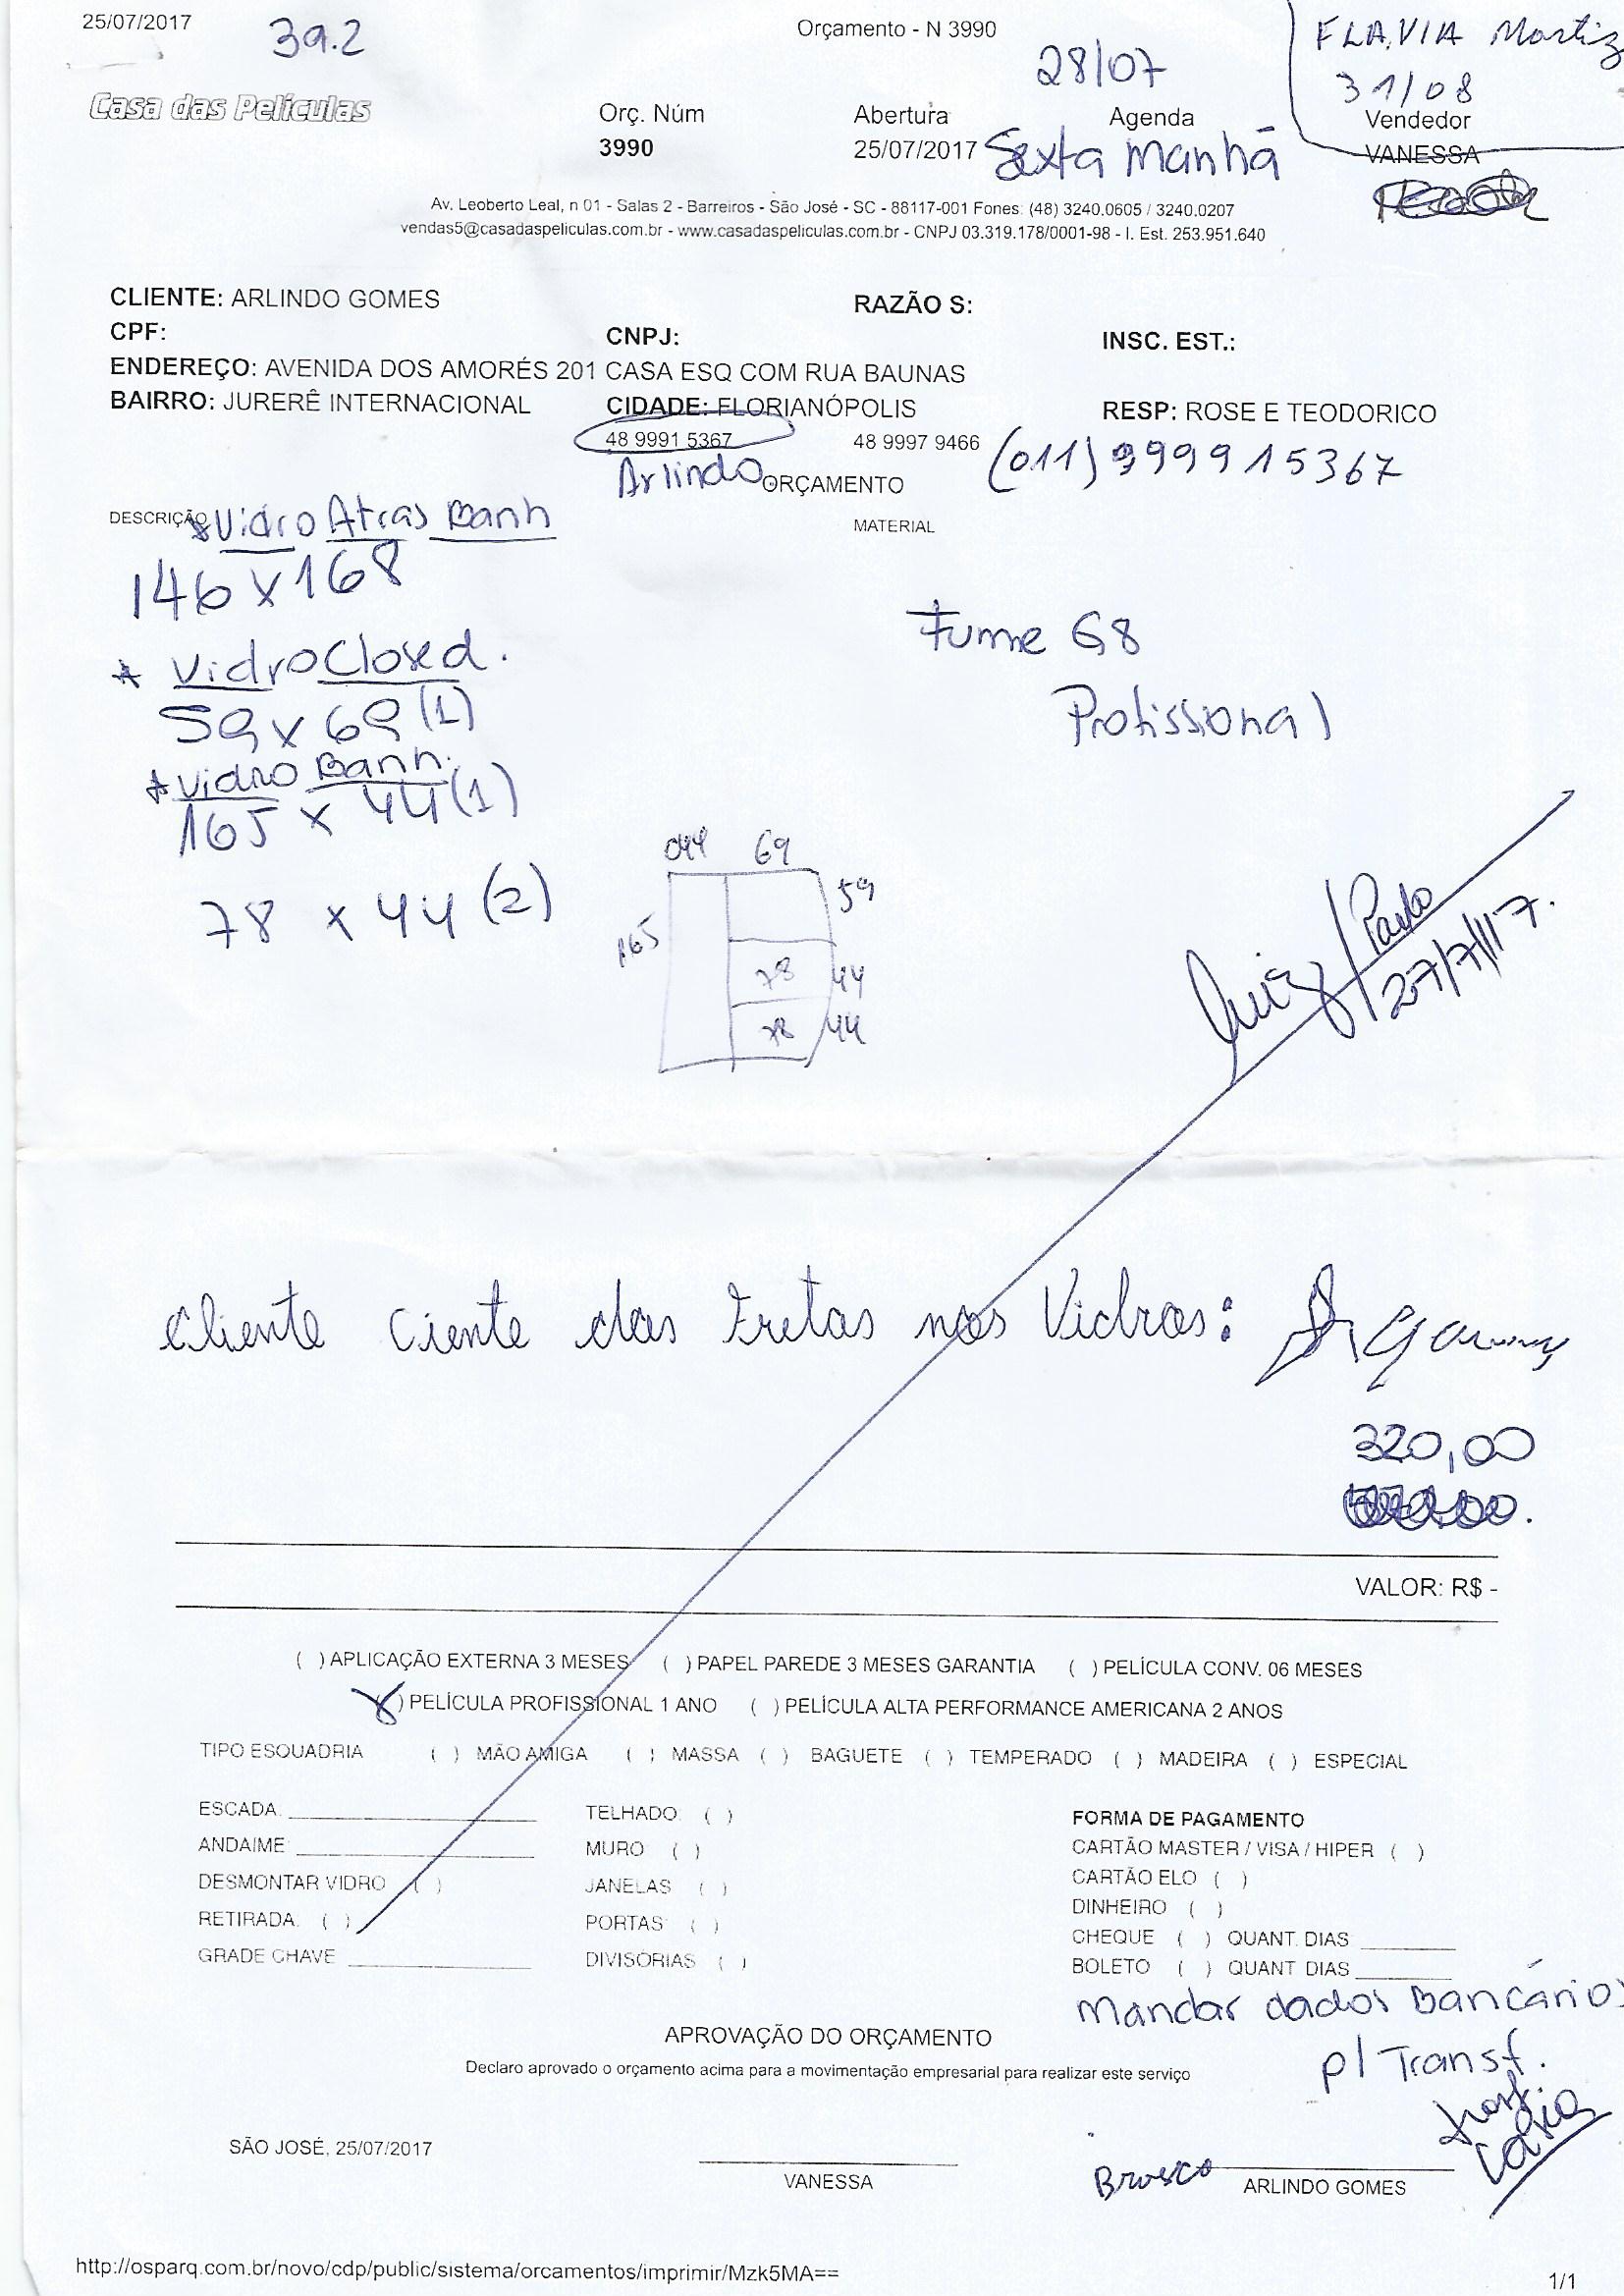 25/07/2017
39.2
Orçamento - N 3990
FLAVIA Martiz
31/08
28/07
Casa das Películas
Orç. Núm
Abertura
Agenda
Vendedor
3990
25/07/2017
Sexta Manhã
VANESSA
Av. Leoberto Leal, n 01 - Salas 2 - Barreiros - São José - SC - 88117-001 Fones: (48) 3240.0605 / 3240.0207
vendas5@casadaspeliculas.com.br - www.casadaspeliculas.com.br - CNPJ 03.319.178/0001-98 - I. Est. 253.951.640
CLIENTE: ARLINDO GOMES
RAZÃO S:
CPF:
CNPJ:
INSC. EST.:
ENDEREÇO: AVENIDA DOS AMORÉS 201 CASA ESQ COM RUA BAUNAS
BAIRRO: JURERÊ INTERNACIONAL
CIDADE: FLORIANÓPOLIS
RESP: ROSE E TEODORICO
48 9991 5367
48 9997 9466
(011) 999915367
Arlindo
ORÇAMENTO
DESCRIÇÃO
* Vidro Atras Banh
MATERIAL
146 x 168
Fume G8
* Vidro Closed.
Profissional
59 x 69 (1)
* Vidro Banh.
165 x 44 (1)
78 x 44 (2)
044 69
59
165
78 44
78 44
Luiz/Paulo
27/7/17.
Cliente Ciente das Fretas nos Vidros:
320,00
VALOR: R$ -
( ) APLICAÇÃO EXTERNA 3 MESES ( ) PAPEL PAREDE 3 MESES GARANTIA ( ) PELÍCULA CONV. 06 MESES
(X) PELÍCULA PROFISSIONAL 1 ANO ( ) PELÍCULA ALTA PERFORMANCE AMERICANA 2 ANOS
TIPO ESQUADRIA ( ) MÃO AMIGA ( ) MASSA ( ) BAGUETE ( ) TEMPERADO ( ) MADEIRA ( ) ESPECIAL
ESCADA:
TELHADO: ( )
FORMA DE PAGAMENTO
ANDAIME:
MURO: ( )
CARTÃO MASTER / VISA / HIPER ( )
DESMONTAR VIDRO ( )
JANELAS ( )
CARTÃO ELO ( )
RETIRADA: ( )
PORTAS: ( )
DINHEIRO ( )
GRADE CHAVE
DIVISORIAS ( )
CHEQUE ( ) QUANT. DIAS
BOLETO ( ) QUANT DIAS
Mandar dados Bancários
p/ Transf.
APROVAÇÃO DO ORÇAMENTO
Declaro aprovado o orçamento acima para a movimentação empresarial para realizar este serviço
SÃO JOSÉ, 25/07/2017
VANESSA
ARLINDO GOMES
http://osparq.com.br/novo/cdp/public/sistema/orcamentos/imprimir/Mzk5MA==
1/1